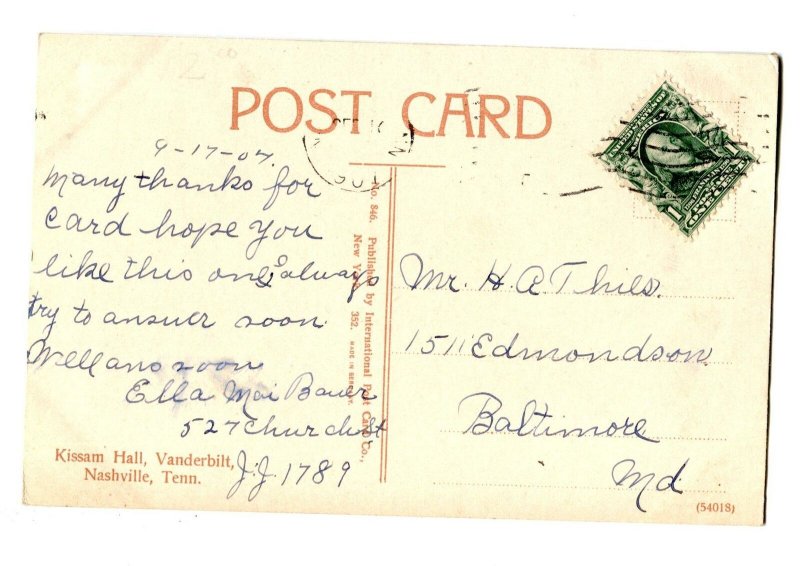 POST CARD
9-17-07.
Many thanks for
Card hope You
like this one I always
try to answer soon
Well ans soon
Ella Mai Bauer
527 Church St
J.J. 1789
Kissam Hall, Vanderbilt,
Nashville, Tenn.
No. 846. Published by International Post Card Co.,
New York. 352. MADE IN GERMANY.
Mr. H. A Thies.
1511 Edmondson
Baltimore
Md
(54018)